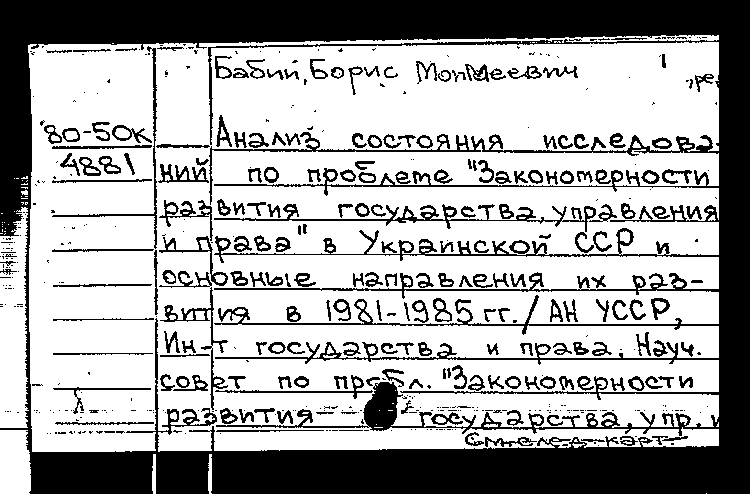 Бабий, Борис Моисеевич
,ре
80-50к
Анализ состояния исследова-
4881
ний по проблеме "Закономерности
развития государства, управления
и права" в Украинской ССР и
основные направления их раз-
вития в 1981-1985 гг. / АН УССР,
Ин-т государства и права. Науч.
совет по пробл. "Закономерности
развития государства, упр. и
См. след. карт.